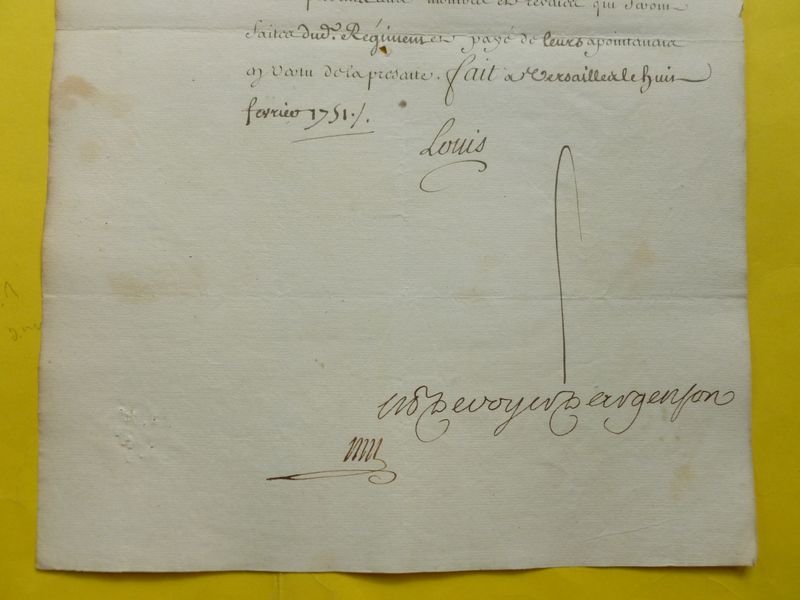 aux montres et revües qui seront
faites dud. Régiment et payé de leurs apointemens
en vertu de la presente. Fait a Versailles le huit
fevrier 1751./.
Louis
M DeVoyer D'argenson